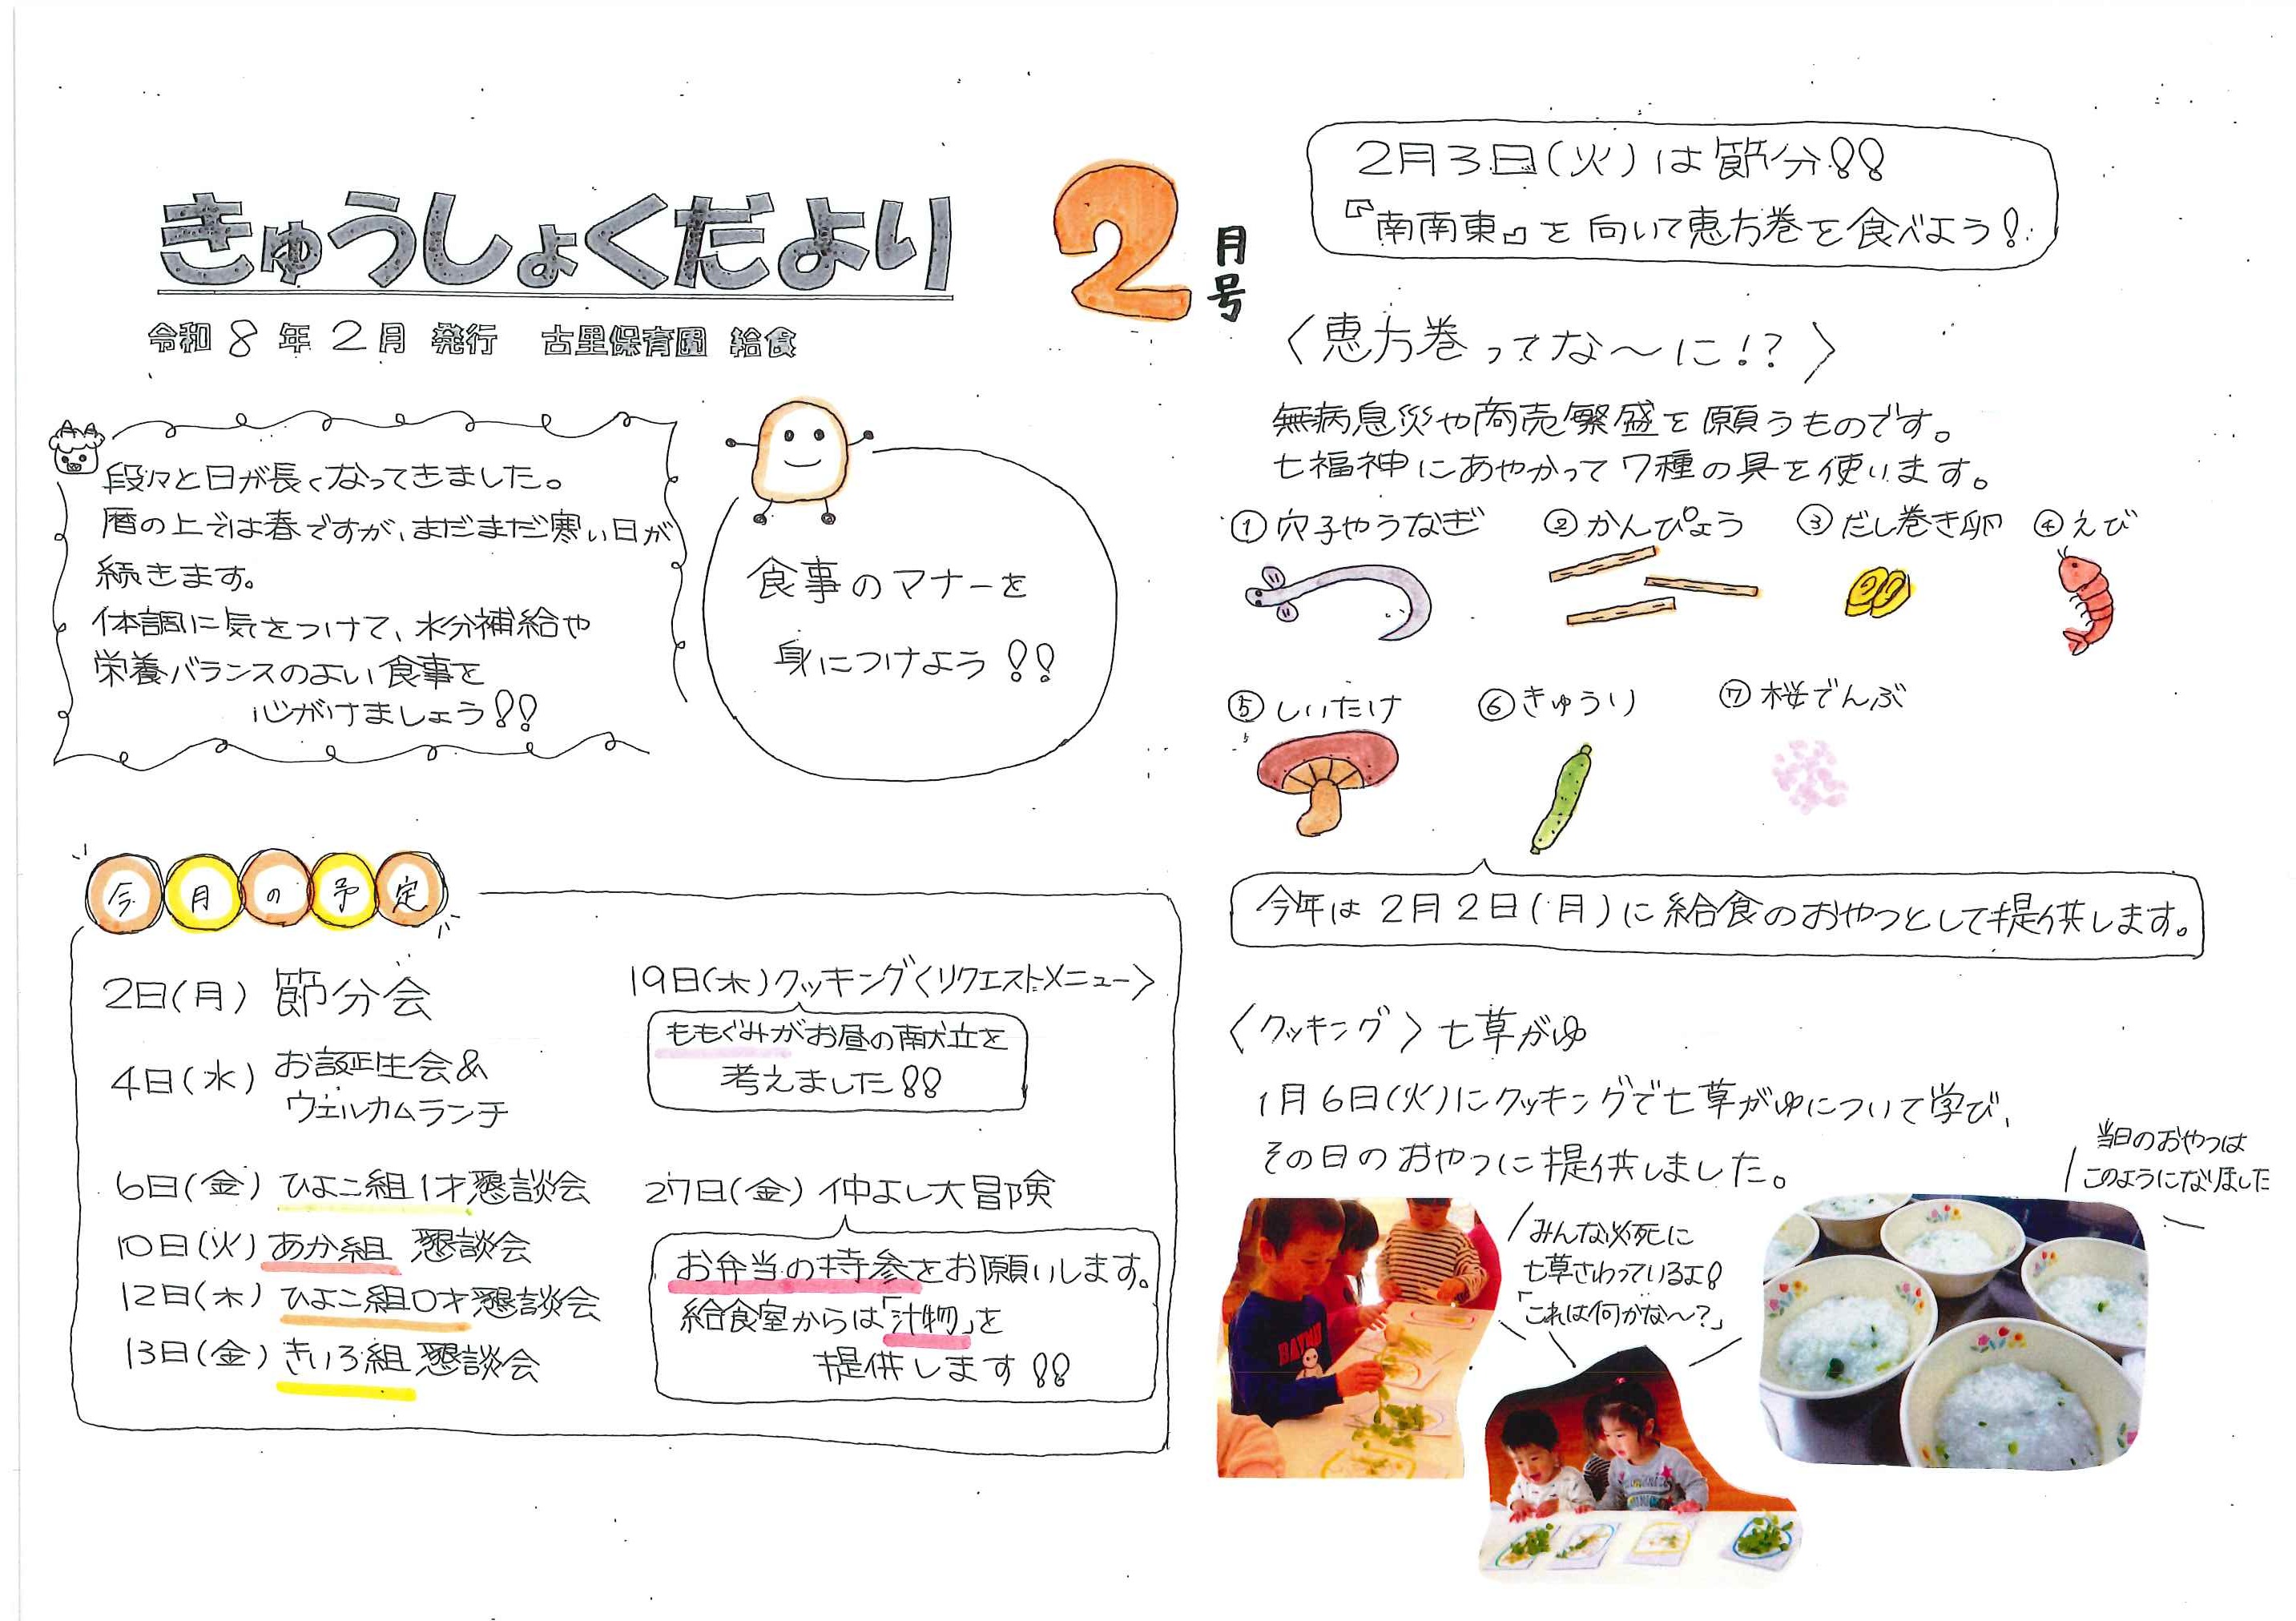 きゅうしょくだより
2月号
令和8年2月 発行 古里保育園 給食
段々と日が長くなってきました。
暦の上では春ですが、まだまだ寒い日が
続きます。
体調に気をつけて、水分補給や
栄養バランスのよい食事を
心がけましょう!!
食事のマナーを
身につけよう!!
今月の予定
2日(月) 節分会
4日(水) お誕生会&
ウェルカムランチ
6日(金) ひよこ組1才懇談会
10日(火) あか組 懇談会
12日(木) ひよこ組0才懇談会
13日(金) きいろ組 懇談会
19日(木) クッキング〈リクエストメニュー〉
ももぐみがお昼の献立を
考えました!!
27日(金) 仲よし大冒険
お弁当の持参をお願いします。
給食室からは「汁物」を
提供します!!
2月3日(火)は節分!!
『南南東』を向いて恵方巻を食べよう!
〈恵方巻ってな〜に!?〉
無病息災や商売繁盛を願うものです。
七福神にあやかって7種の具を使います。
①穴子やうなぎ ②かんぴょう ③だし巻き卵 ④えび
⑤しいたけ ⑥きゅうり ⑦桜でんぶ
今年は2月2日(月)に給食のおやつとして提供します。
〈クッキング〉七草がゆ
1月6日(火)にクッキングで七草がゆについて学び、
その日のおやつに提供しました。
当日のおやつは
このようになりました
みんな必死に
七草さわっているよ!
「これは何かな〜?」